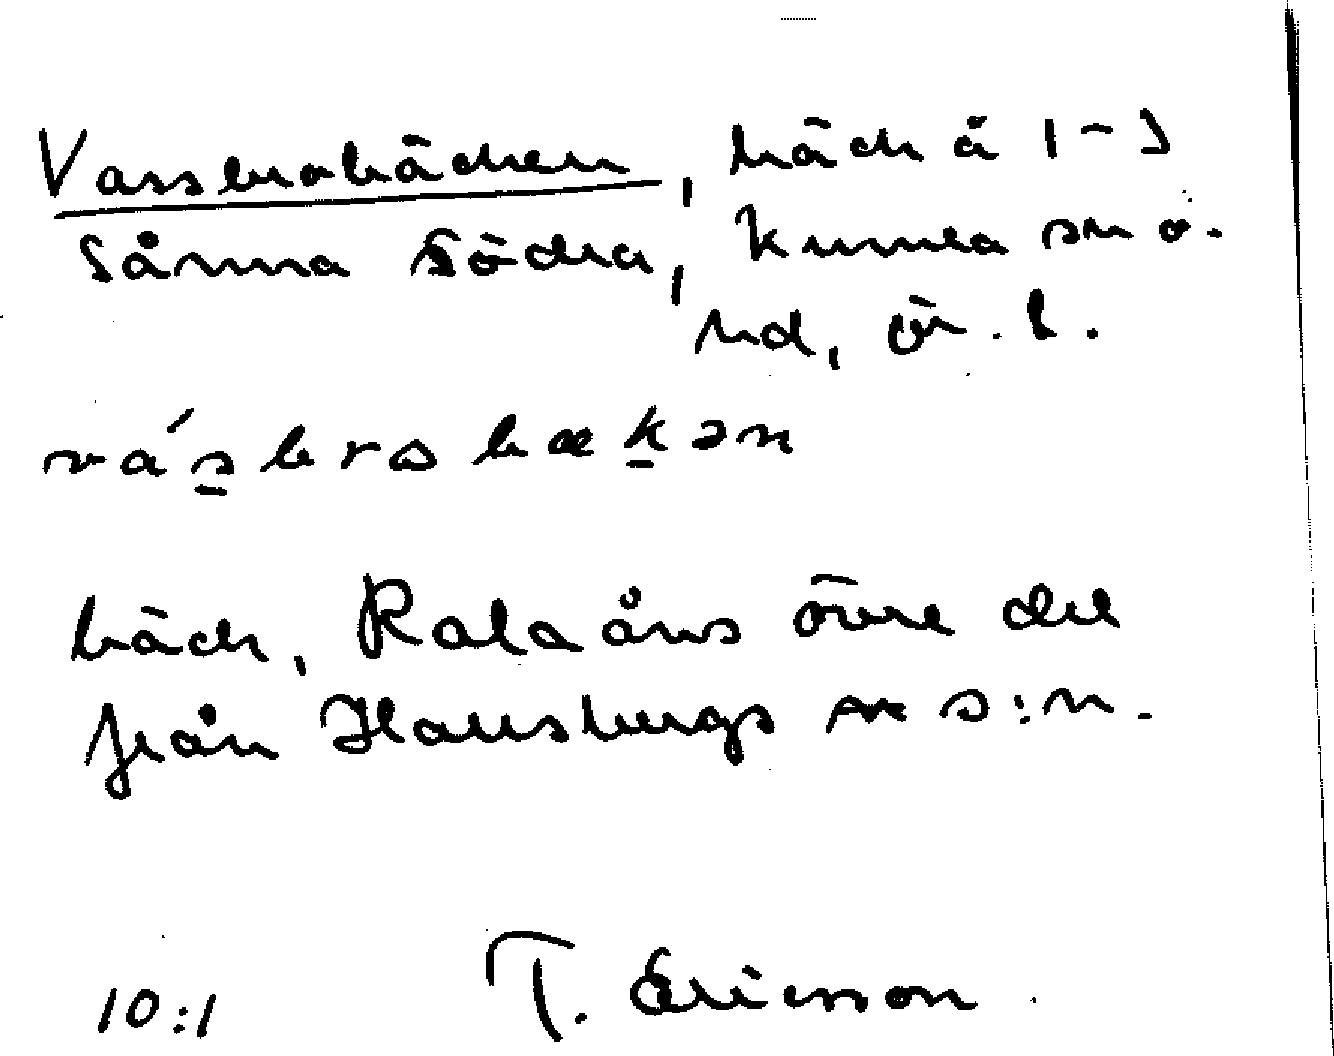 Vassbrobäcken, bäck å 1-3
Sånna Södra, Kumla sn o.
hd, Ör. l.
vás̲brobæk̲ən
bäck, Ralaåns övre del
från Hallsbergs sn s:n.
10:1 T. Ericsson